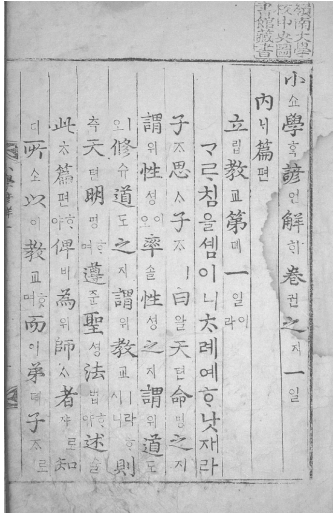 嶺南大學
校中央圖
書館藏書
小쇼學ᄒᆞᆨ諺언解ᄒᆡ卷권之지一일
內ᄂᆡ篇편
立립敎교第뎨一일이라
ᄀᆞᄅᆞ침을셈이니ᄎᆞ례예ᄒᆞ낫재라
子ᄌᆞ思ᄉᆞ子ᄌᆞㅣ曰왈天텬命명之지
謂위性셩이오率솔性셩之지謂위道도
ㅣ오修슈道도之지謂위敎교ㅣ라ᄒᆞ시니則
측天텬明명ᄒᆞ며遵준聖셩法법ᄒᆞ야述슐
此ᄎᆞ篇편ᄒᆞ야俾비為위師ᄉᆞ者쟈로知
디所소以이敎교ᄒᆞ며而이弟뎨子ᄌᆞ로